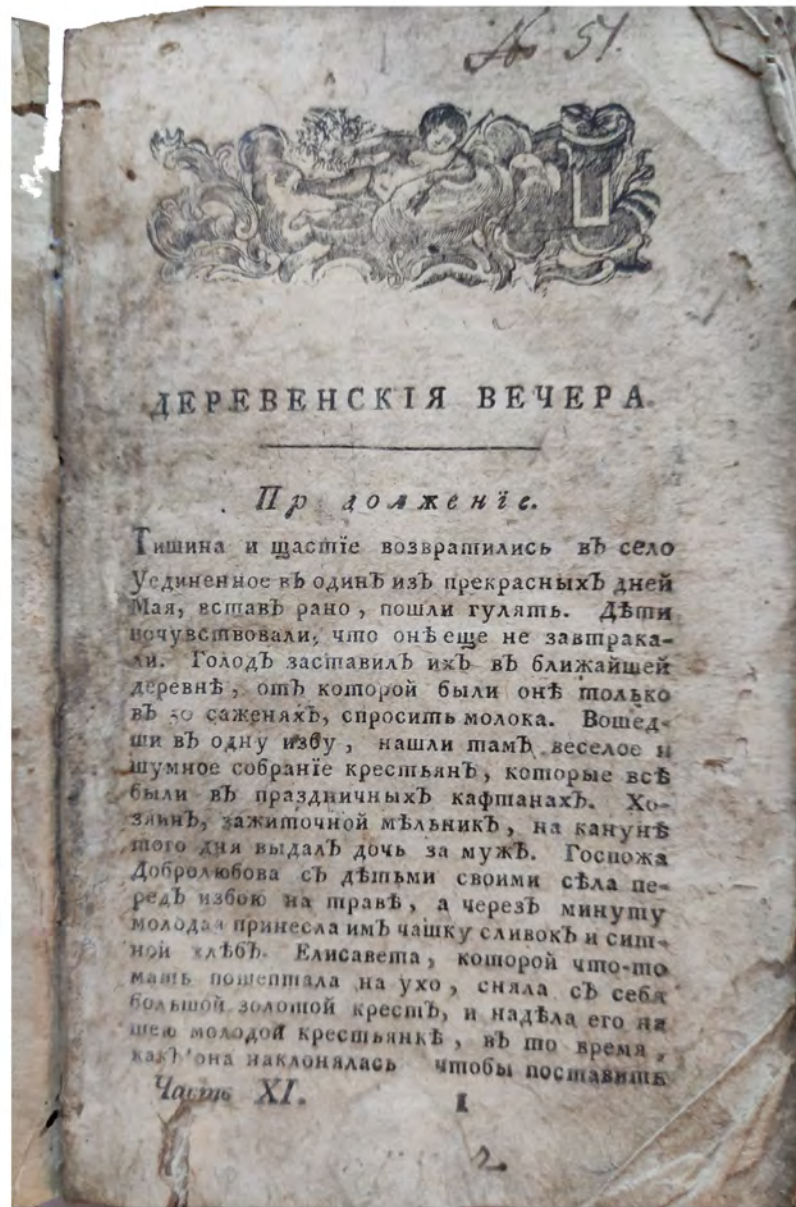 № 51.
ДЕРЕВЕНСКІЯ ВЕЧЕРА.
Пр должен&#1111;е.
Тишина и щастїе возвратились въ село
Уединенное въ одинъ изъ прекрасныхъ дней
Мая, вставъ рано, пошли гулять. Дѣти
почувствовали, что онѣ еще не завтрака-
ли. Голодъ заставилъ ихъ въ ближайшей
деревнѣ, отъ которой были онѣ только
въ 50 саженяхъ, спросить молока. Вошед-
ши въ одну избу, нашли тамъ веселое и
шумное собранїе крестьянъ, которые всѣ
были въ праздничныхъ кафтанахъ. Хо-
зяинъ, зажиточной мѣльникъ, на канунѣ
того дня выдалъ дочь за мужъ. Госпожа
Добролюбова съ дѣтьми своими сѣла пе-
редъ избою на травѣ, а черезъ минуту
молодая принесла имъ чашку сливокъ и сит-
ной хлѣбъ. Елисавета, которой что-то
мать пошептала на ухо, сняла съ себя
большой золотой крестъ, и надѣла его на
шею молодой крестьянкѣ, въ то время,
какъ она наклонялась чтобы поставить
Часть XI. 1
2